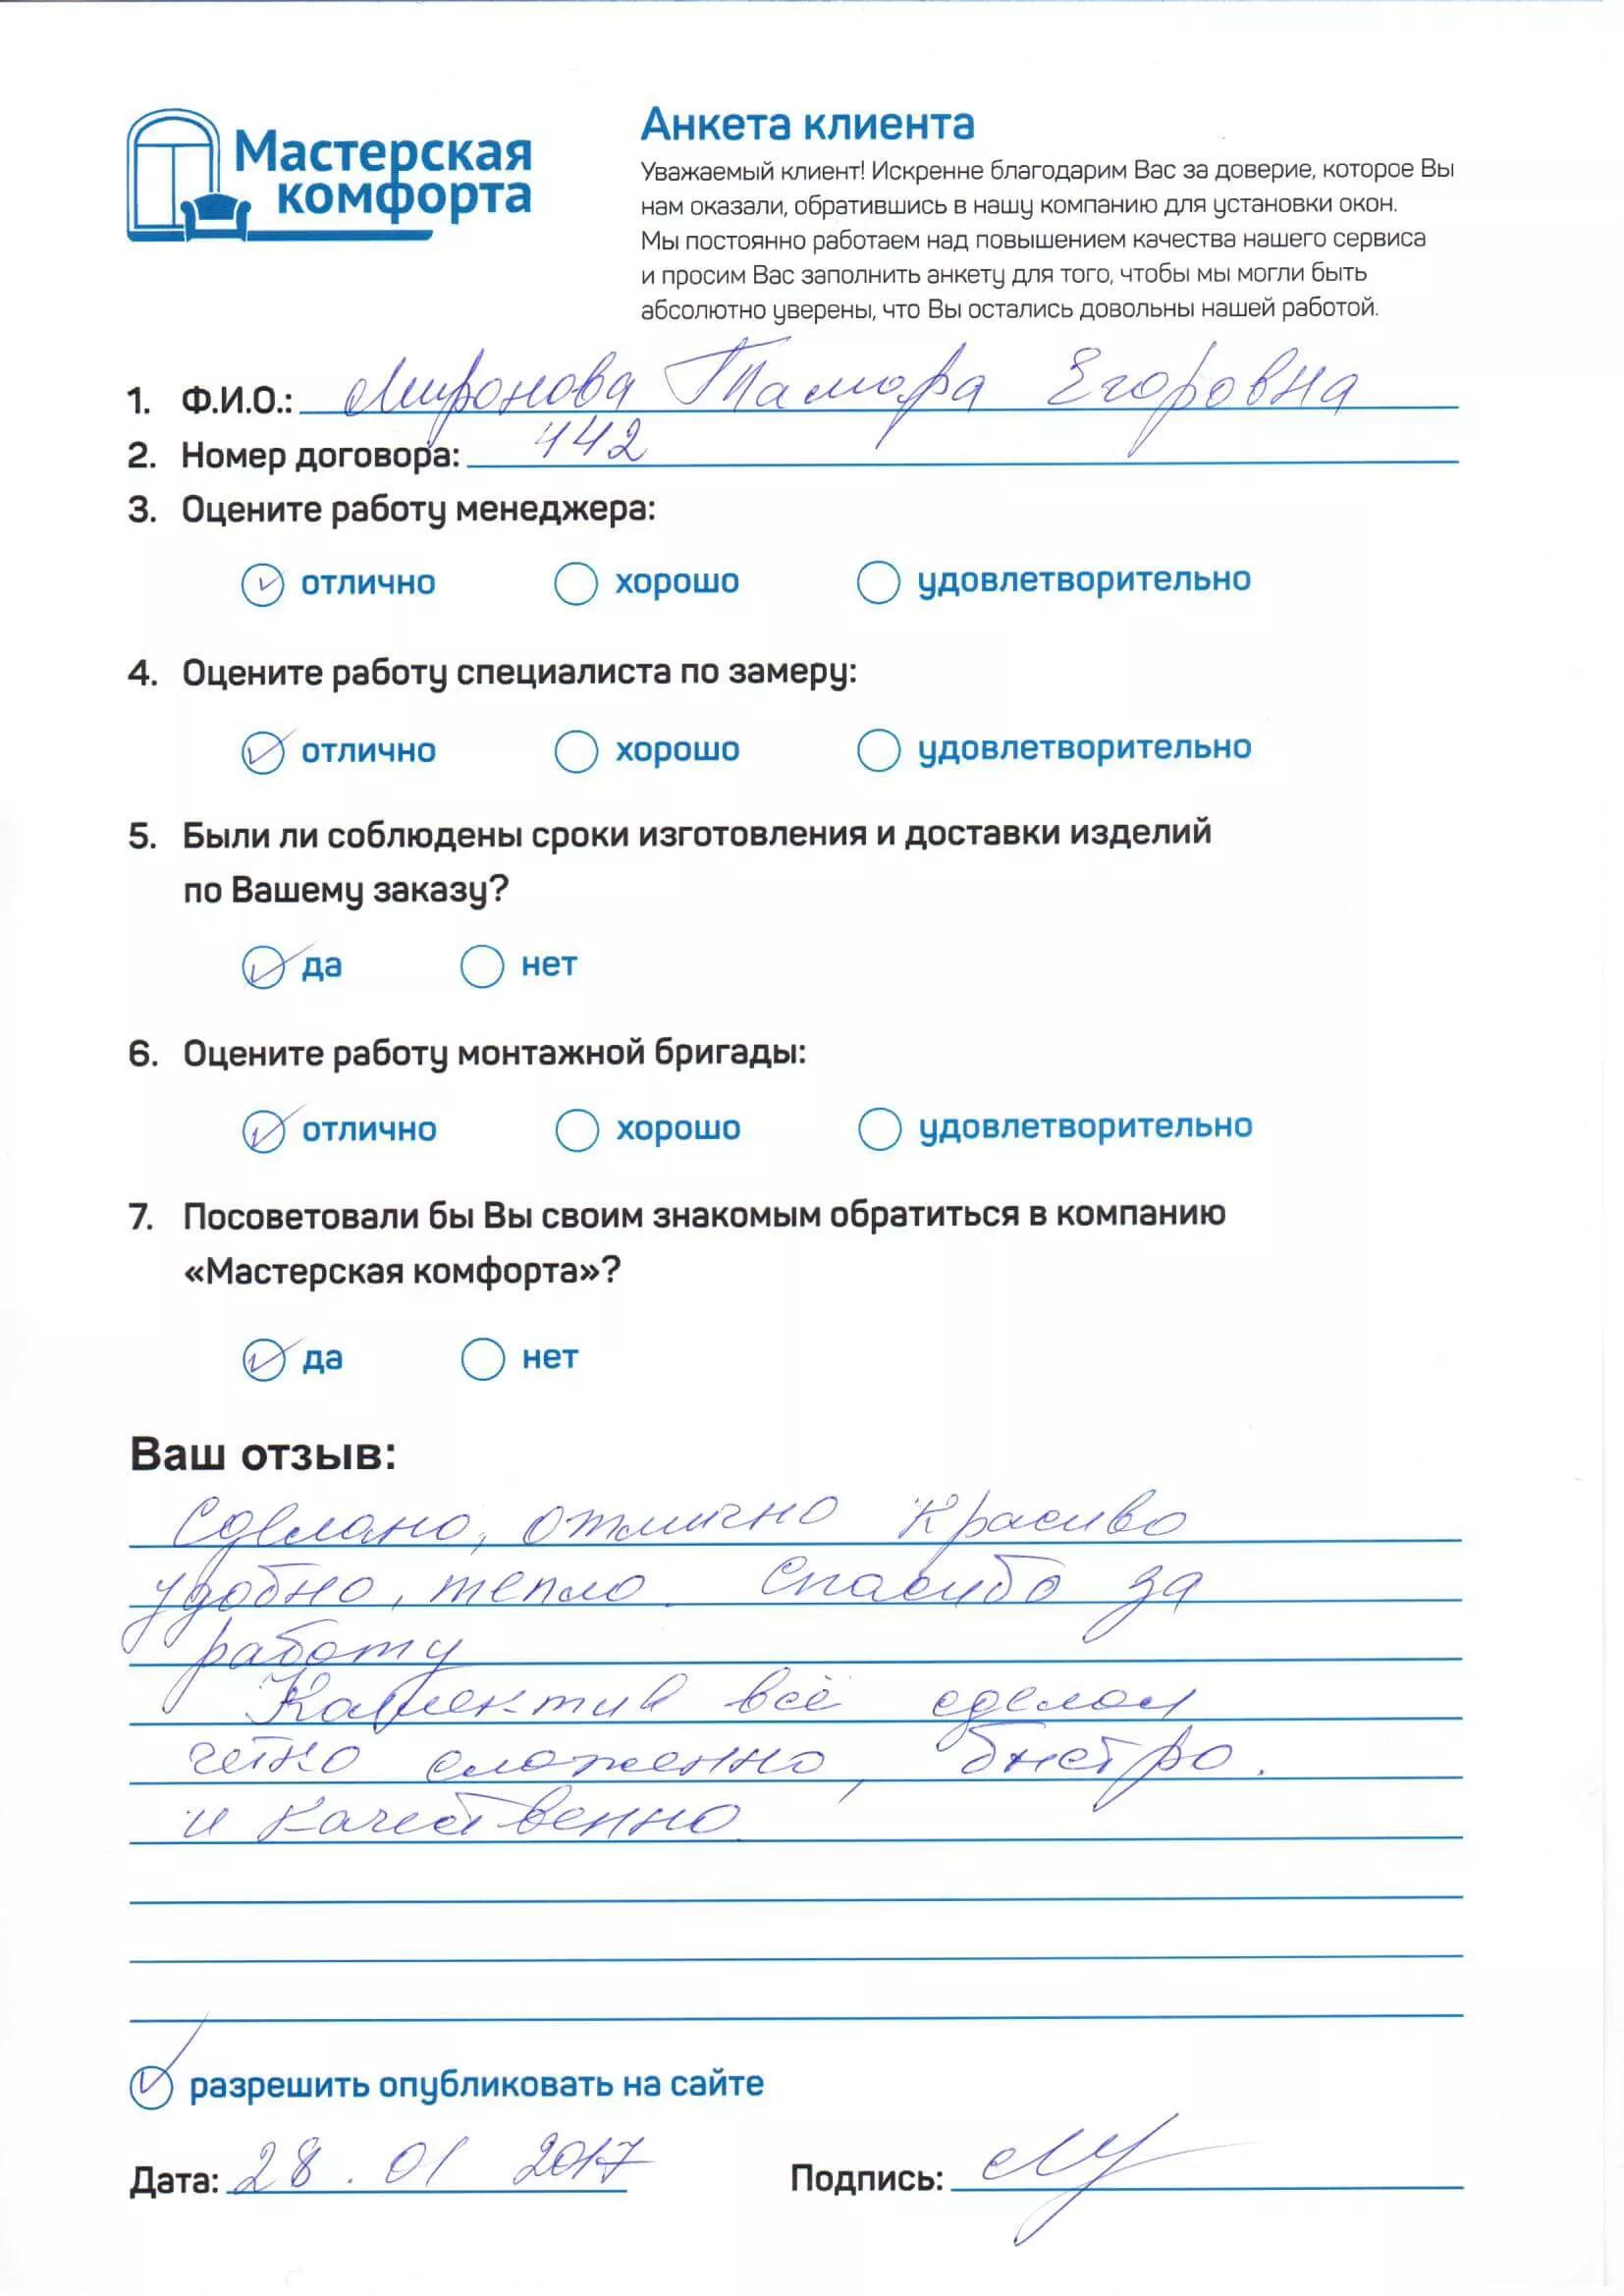 Мастерская
комфорта
Анкета клиента
Уважаемый клиент! Искренне благодарим Вас за доверие, которое Вы
нам оказали, обратившись в нашу компанию для установки окон.
Мы постоянно работаем над повышением качества нашего сервиса
и просим Вас заполнить анкету для того, чтобы мы могли быть
абсолютно уверены, что Вы остались довольны нашей работой.
1. Ф.И.О.: Миронова Тамара Егоровна
2. Номер договора: 442
3. Оцените работу менеджера:
отлично хорошо удовлетворительно
4. Оцените работу специалиста по замеру:
отлично хорошо удовлетворительно
5. Были ли соблюдены сроки изготовления и доставки изделий
по Вашему заказу?
да нет
6. Оцените работу монтажной бригады:
отлично хорошо удовлетворительно
7. Посоветовали бы Вы своим знакомым обратиться в компанию
«Мастерская комфорта»?
да нет
Ваш отзыв:
Сделано, отлично красиво
удобно, тепло. Спасибо за
работу
Коллектив всё сделал
чётко сложенно, быстро.
и качественно
разрешить опубликовать на сайте
Дата: 28.01 2017 Подпись: